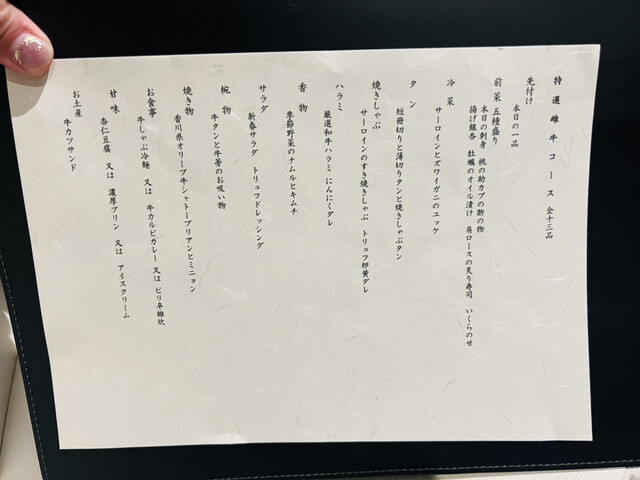 特選雌牛コース 全十三品
先付け
本日の一品
前菜 五種盛り
本日の刺身 桃の助カブの酢の物
揚げ銀杏 牡蠣のオイル漬け 肩ロースの炙り寿司 いくらのせ
冷菜
サーロインとズワイガニのユッケ
タン
短冊切りと薄切りタンと焼きしゃぶタン
焼きしゃぶ
サーロインのすき焼きしゃぶ トリュフ卵黄ダレ
ハラミ
厳選和牛ハラミ にんにくダレ
香物
季節野菜のナムルとキムチ
サラダ
新春サラダ トリュフドレッシング
椀物
牛タンと牛蒡のお吸い物
焼き物
香川県オリーブ牛シャトーブリアンとミニョン
お食事
牛しゃぶ冷麺 又は 牛カルビカレー 又は ピリ辛雑炊
甘味
杏仁豆腐 又は 濃厚プリン 又は アイスクリーム
お土産
牛カツサンド